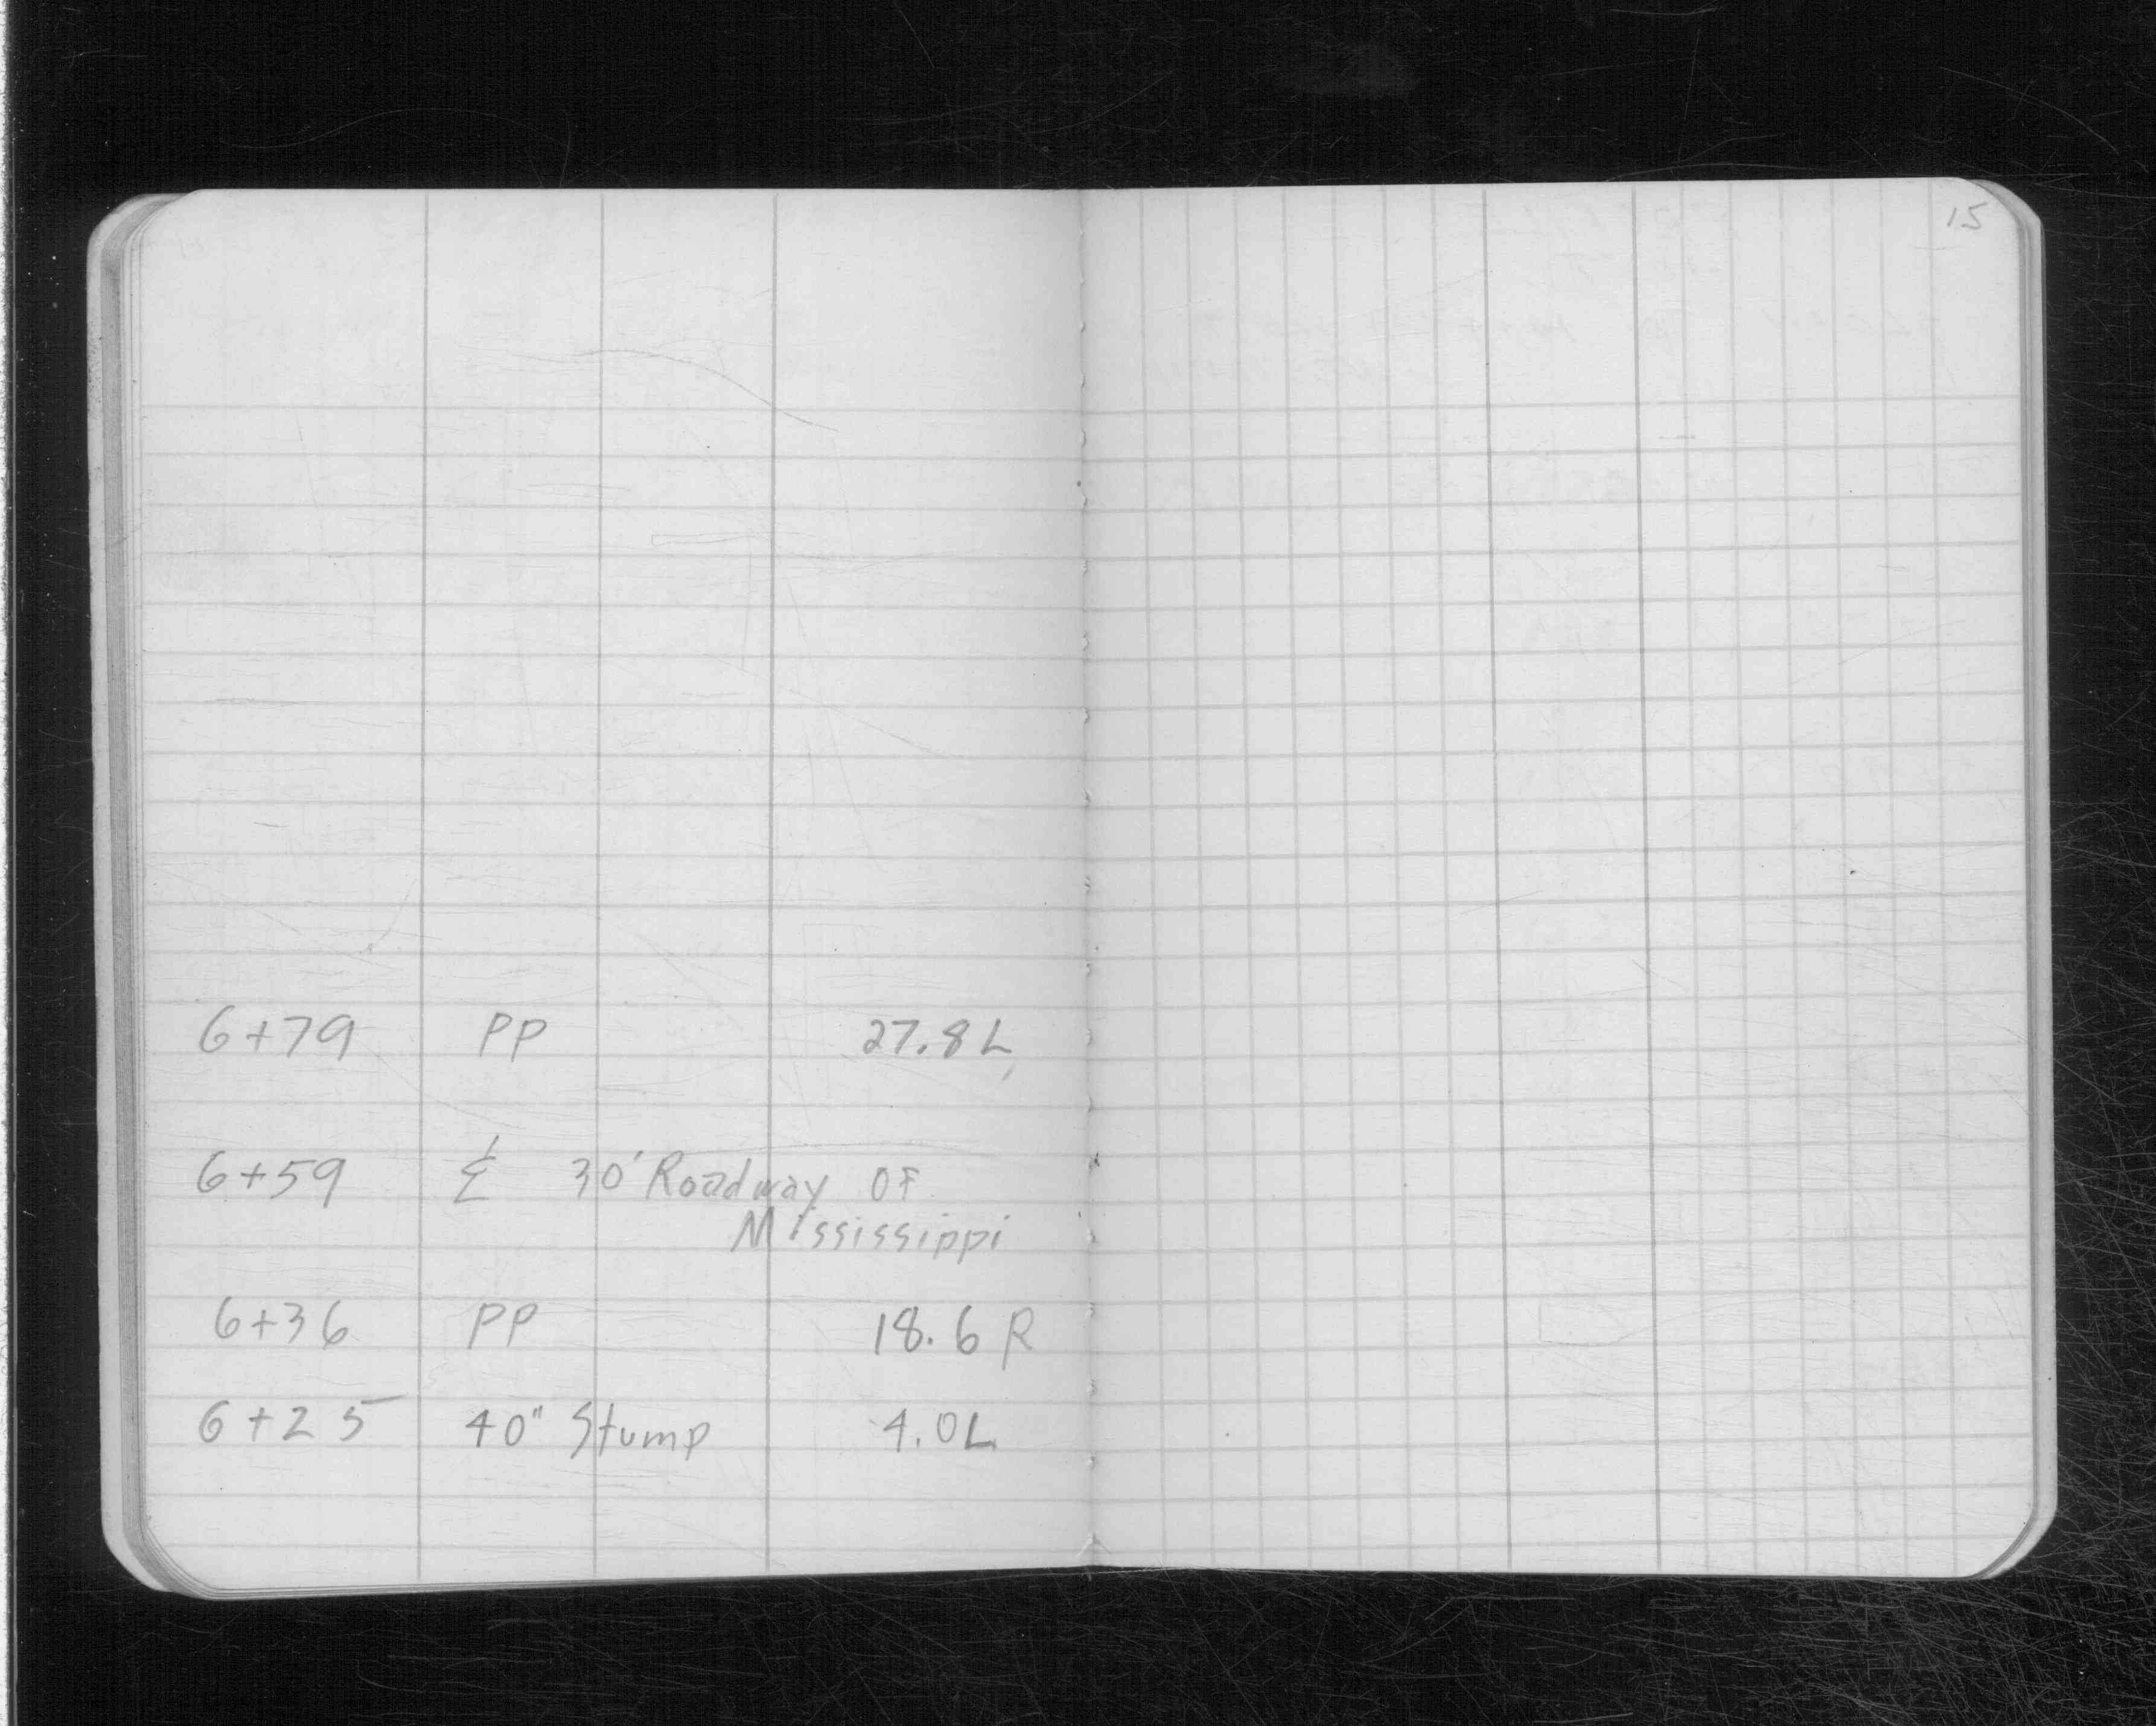 15
6+79 PP 27.8 L
6+59 ℄ 30' Roadway OF
Mississippi
6+36 PP 18.6 R
6+25 40" Stump 4.0 L